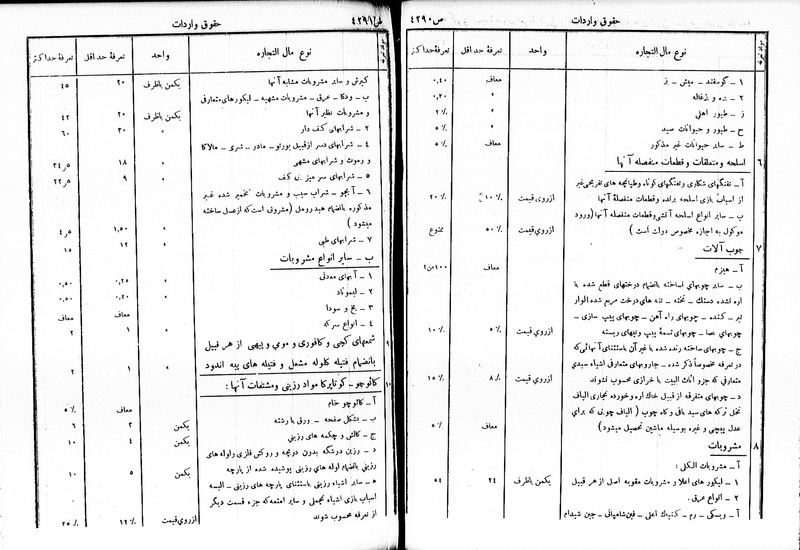 ص ٤٢٩٠
حقوق واردات
نوع مال التجاره	واحد	تعرفهٔ حداقل	تعرفهٔ حداکثر
۱ ـ گوسفند ـ میش ـ بز	معاف	۰,۴۰
۲ ـ بره و بزغاله	»	۰,۲۰
ز ـ طیور اهلی	»	۲ %
ح ـ طیور و حیوانات صید	»	۵ %
ط ـ سایر حیوانات غیر مذکور	معاف	۵ %
۶ اسلحه و متعلقات و قطعات منفصله آنها
آ ـ تفنگهای شکاری و تفنگهای کوتاه و طپانچه های تفریحی غیر
از اسباب بازی اسلحه برنده و قطعات منفصلهٔ آنها	ازروی قیمت	۱۰ %	۲۰ %
ب ـ سایر انواع اسلحه آتشی و قطعات منفصله آنها (ورود
موکول به اجازه مخصوص دولت است )	ازروی قیمت	۵۰ %	ممنوع
۷ چوب آلات
آ ـ هیزم	معاف
ب ـ سایر چوبهای نساخته بانضمام درختهای قطع شده یا
اره نشده دستك ـ تخته ـ تنه های درخت مریم شده الوار
تیر ـ کنده ـ چوبهای راه آهن ـ چوبهای پیپ سازی ـ
چوبهای عصا ـ چوبهای تسمهٔ پیپ ونیهای ریسته	ازروی قیمت	۵ %	۱۰ %
ج ـ چوبهای ساخته رنده شده یا غیر آن باستثنای آنهائی که
در تعرفه مخصوصاً ذکر شده ـ جاروبهای متعارفی اشیاء سبدی
متعارفی که جزو اثاث البیت یا خرازی محسوب نشوند	ازروی قیمت	۸ %	۱۵ %
د ـ چوبهای متفرقه از قبیل خاك اره و خورده نجاری الیاف
نخل ترکه های سبد بافی و کاه چوب ( الیاف چوبی که برای
عدل پیچی و غیره بوسیله ماشین تحصیل میشود )	معاف	۵ %
۸ مشروبات
آ ـ مشروبات الکلی :
۱ ـ لیکور های اعلا و مشروبات مقویه اصل از هر قبیل	یکمن باظرف	۲۴	۵۴
۲ ـ انواع عرق .
آ ـ ویسکی ـ رم ـ کنیاك اعلی ـ فین شامپانی ـ جین شیدام
ص ٤٢٩١
حقوق واردات
نوع مال التجاره	واحد	تعرفهٔ حداقل	تعرفهٔ حداکثر
کیرش و سایر مشروبات مشابه آنها	یکمن باظرف	۲۰	۴۵
ب ـ ودکا ـ عرق ـ مشروبات مشهیه ـ لیکورهای متعارفی
و مشروبات نظیر آنها	یکمن باظرف	۲۰	۴۲
۲ ـ شرابهای کف دار	»	۳۰	۶۰
۴ ـ شرابهای دسر ازقبیل پورتو ـ مادر ـ شری ـ مالاگا
و رموث و شرابهای مشهی	»	۱۸	۲۴ر۵
۵ ـ شرابهای سر میز بی کف	»	۹	۲۲ر۵
۶ ـ آبجو ـ شراب سیب و مشروبات تخمیر شده غیر
مذکوره بانضمام هیدرومل (مشروبی است که ازعسل ساخته
میشود )	»	۱,۵۰	۴ر۵
۷ ـ شرابهای طبی	»	۱۲	۱۵
ب ـ سایر انواع مشروبات
۱ ـ آبهای معدنی	»	۰,۲۵	۰,۵۰
۲ ـ لیموناد	»	۰,۲۰	۰,۵۰
۳ ـ یخ و سودا	معاف	معاف
۴ ـ انواع سرکه	»	۱	۲
۹ شمعهای گچی و کافوری و مومی و پیهی از هر قبیل
بانضمام فتیله گلوله مشعل و فتیله های پیه اندود	»	۱	۲
۱۰ کائوچو ـ گوتاپرکا مواد رزینی و مشتقات آنها :
آ ـ کائوچو خام	معاف	۵ %
ب ـ بشکل صفحه ـ ورق یا رشته	یکمن	۳	۶
ج ـ کالش و چکمه های رزینی	یکمن	۴	۱۰
د ـ رزین درشگه بدون دوچه و روکش فلزی و لوله های
رزینی بانضمام لوله های رزینی پوشیده شده از پارچه	یکمن	۵	۱۰
ه ـ سایر اشیاء رزینی باستثنای پارچه های رزینی ـ البسه
اسباب بازی اشیاء تجملی و سایر امتعه که جزء قسمت دیگر
از تعرفه محسوب شوند	ازروی قیمت	۱۲ %	۲۵ %